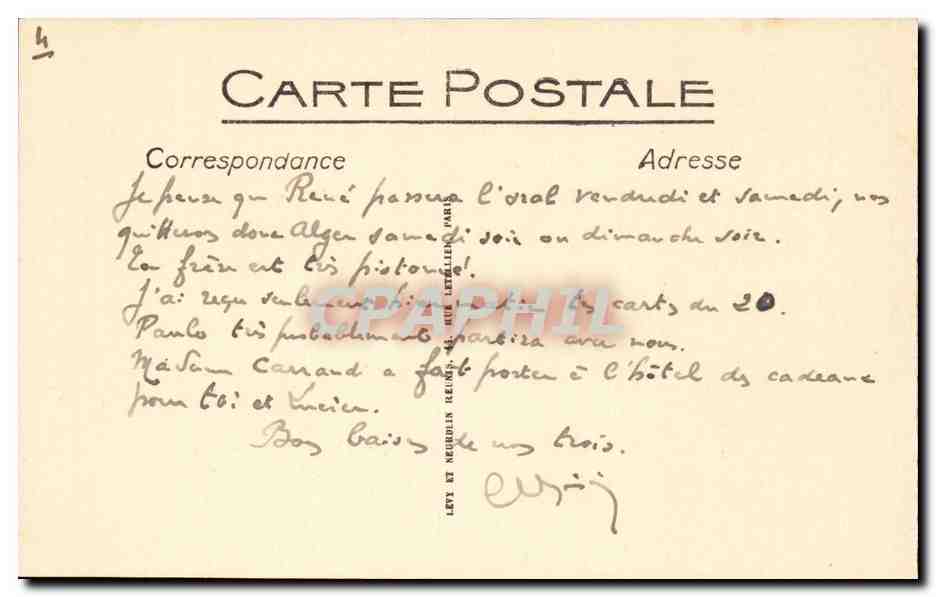 4
CARTE POSTALE
Correspondance Adresse
Je pense que René passera l'oral vendredi et samedi, nous
quitterons donc Alger samedi soir ou dimanche soir.
Ton frère est très pistonné!
J'ai reçu seulement hier matin tes cartes du 20.
Paulo très probablement partira avec nous.
Madame Carrand a fait porter à l'hôtel des cadeaux
pour toi et Lucien.
Bons baisers de nous trois.
LEVY ET NEURDEIN REUNIS, 44, RUE LETELLIER, PARIS
CPAPHIL